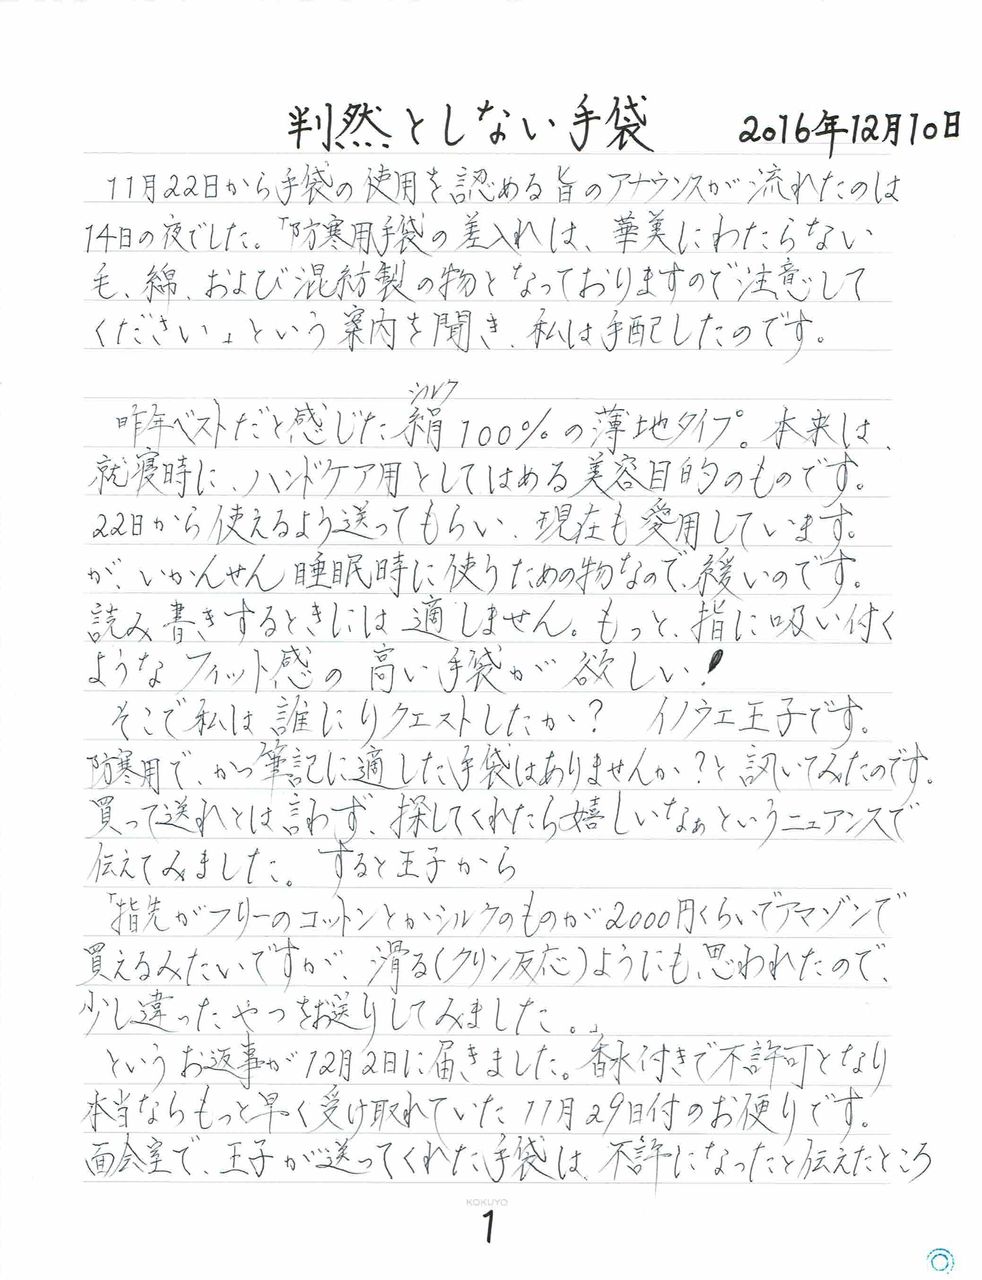 判然としない手袋 2016年12月10日
11月22日から手袋の使用を認める旨のアナウンスが流れたのは
14日の夜でした。「防寒用手袋の差入れは、華美にわたらない
毛、綿、および混紡製の物となっておりますので注意して
ください」という案内を聞き、私は手配したのです。
シルク
昨年ベストだと感じた絹100%の薄地タイプ。本来は、
就寝時に、ハンドケア用としてはめる美容目的のものです。
22日から使えるよう送ってもらい、現在も愛用しています。
が、いかんせん睡眠時に使うための物なので、緩いのです。
読み書きするときには適しません。もっと、指に吸い付く
ようなフィット感の高い手袋が欲しい!
そこで私は誰にリクエストしたか? イノウエ王子です。
防寒用で、かつ筆記に適した手袋はありませんか?と訊いてみたのです。
買って送れとは言わず、探してくれたら嬉しいなぁというニュアンスで
伝えてみました。すると王子から
「指先がフリーのコットンとかシルクのものが2000円くらいでアマゾンで
買えるみたいですが、滑る(クリン反応)ようにも思われたので、
少し違ったやつをお送りしてみました。」
というお返事が12月2日に届きました。香水付きで不許可となり
本当ならもっと早く受け取れていた11月29日付のお便りです。
面会室で、王子が送ってくれた手袋は、不許になったと伝えたところ
KOKUYO
1